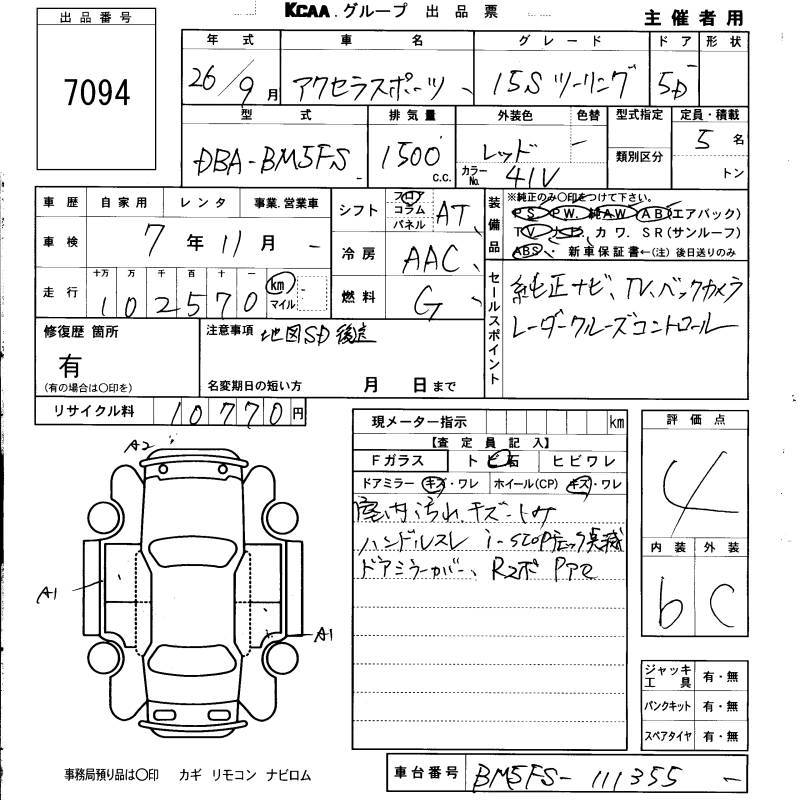 KCAA.グループ 出品票
主催者用
出品番号
7094
年式 車名 グレード ドア 形状
26/9月 アクセラスポーツ 15S ツーリング 5D
型式 排気量 外装色 色替 型式指定 定員・積載
DBA-BM5FS 1500 c.c. レッド 類別区分 5名
カラーNo. 41V トン
車歴 自家用 レンタ 事業.営業車
シフト フロア コラム パネル AT
装備品
※純正のみ〇印をつけて下さい。
PS PW. 純AW AB(エアバック)
TV ナビ カワ. SR(サンルーフ)
ABS 新車保証書←(注)後日送りのみ
車検 7年11月
冷房 AAC
走行 十万 万 千 百 十 一
102570 km マイル
燃料 G
セールスポイント
純正ナビ、TV、バックカメラ
レーダークルーズコントロール
修復歴 箇所
有
(有の場合は〇印を)
注意事項 地図SD後送
名変期日の短い方 月 日まで
リサイクル料 10770円
現メーター指示 km
【査定員記入】
Fガラス トビ石 ヒビワレ
ドアミラー キズ・ワレ ホイール(CP) キズ・ワレ
室内汚れ、キズ
ハンドルスレ i-stop
ドアミラーカバー、
評価点
4
内装 外装
b C
A2
A1
A1
ジャッキ工具 有・無
パンクキット 有・無
スペアタイヤ 有・無
事務局預り品は〇印 カギ リモコン ナビロム
車台番号 BM5FS-111355